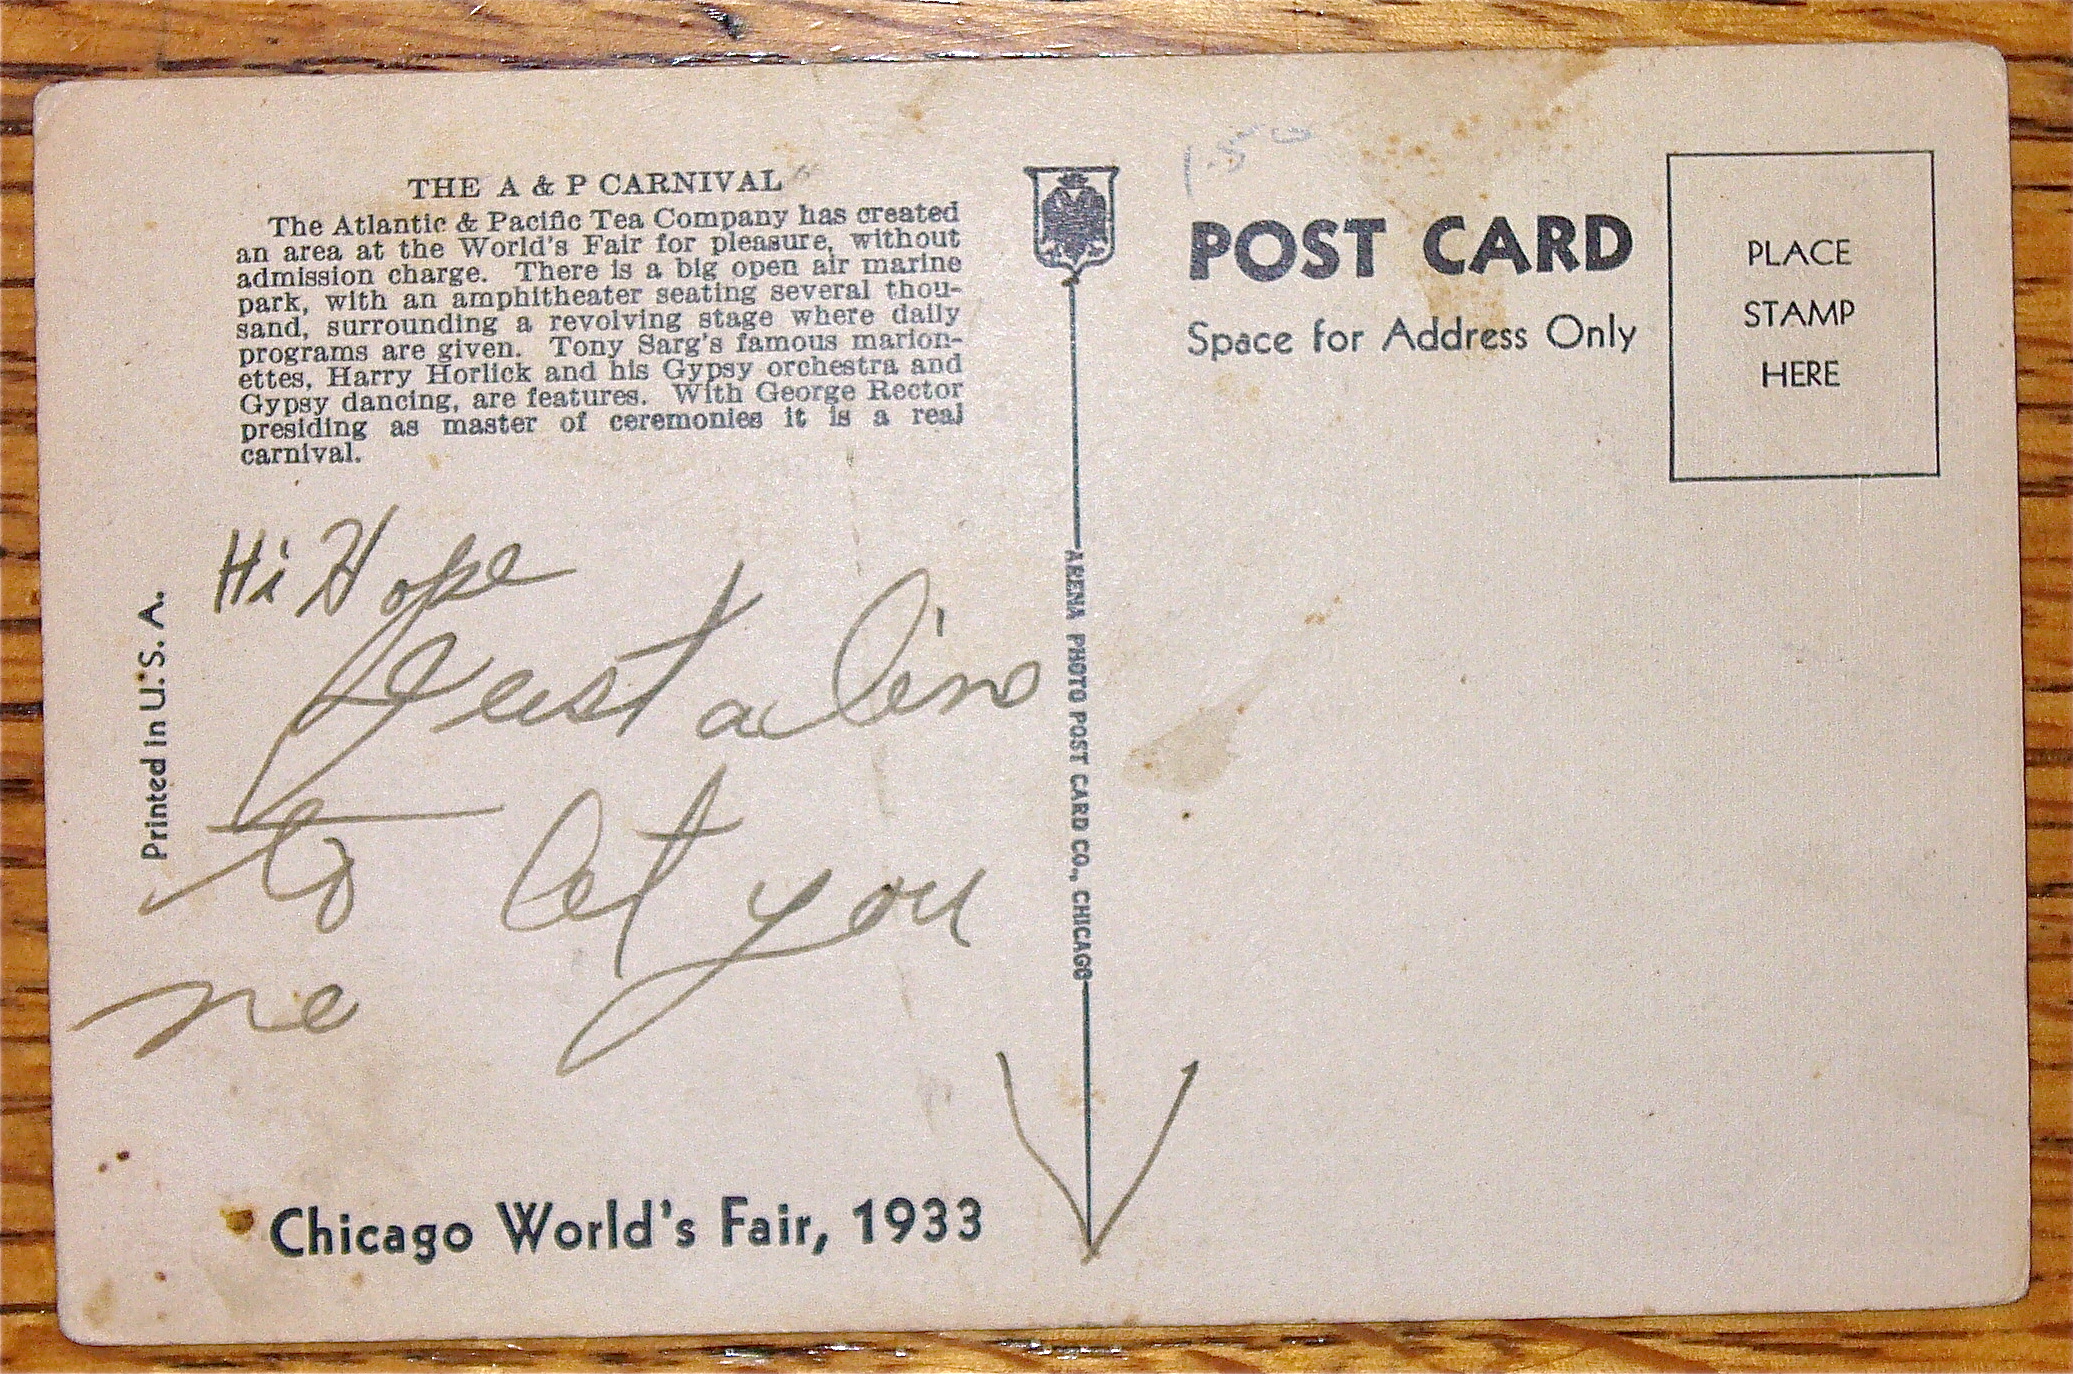 THE A & P CARNIVAL
The Atlantic & Pacific Tea Company has created
an area at the World's Fair for pleasure, without
admission charge. There is a big open air marine
park, with an amphitheater seating several thou-
sand, surrounding a revolving stage where daily
programs are given. Tony Sarg's famous marion-
ettes, Harry Horlick and his Gypsy orchestra and
Gypsy dancing, are features. With George Rector
presiding as master of ceremonies it is a real
carnival.
Hi Hope
Just a line
to let you
ne
Printed in U. S. A.
Chicago World's Fair, 1933
ARENA PHOTO POST CARD CO., CHICAGO
150
POST CARD
Space for Address Only
PLACE
STAMP
HERE